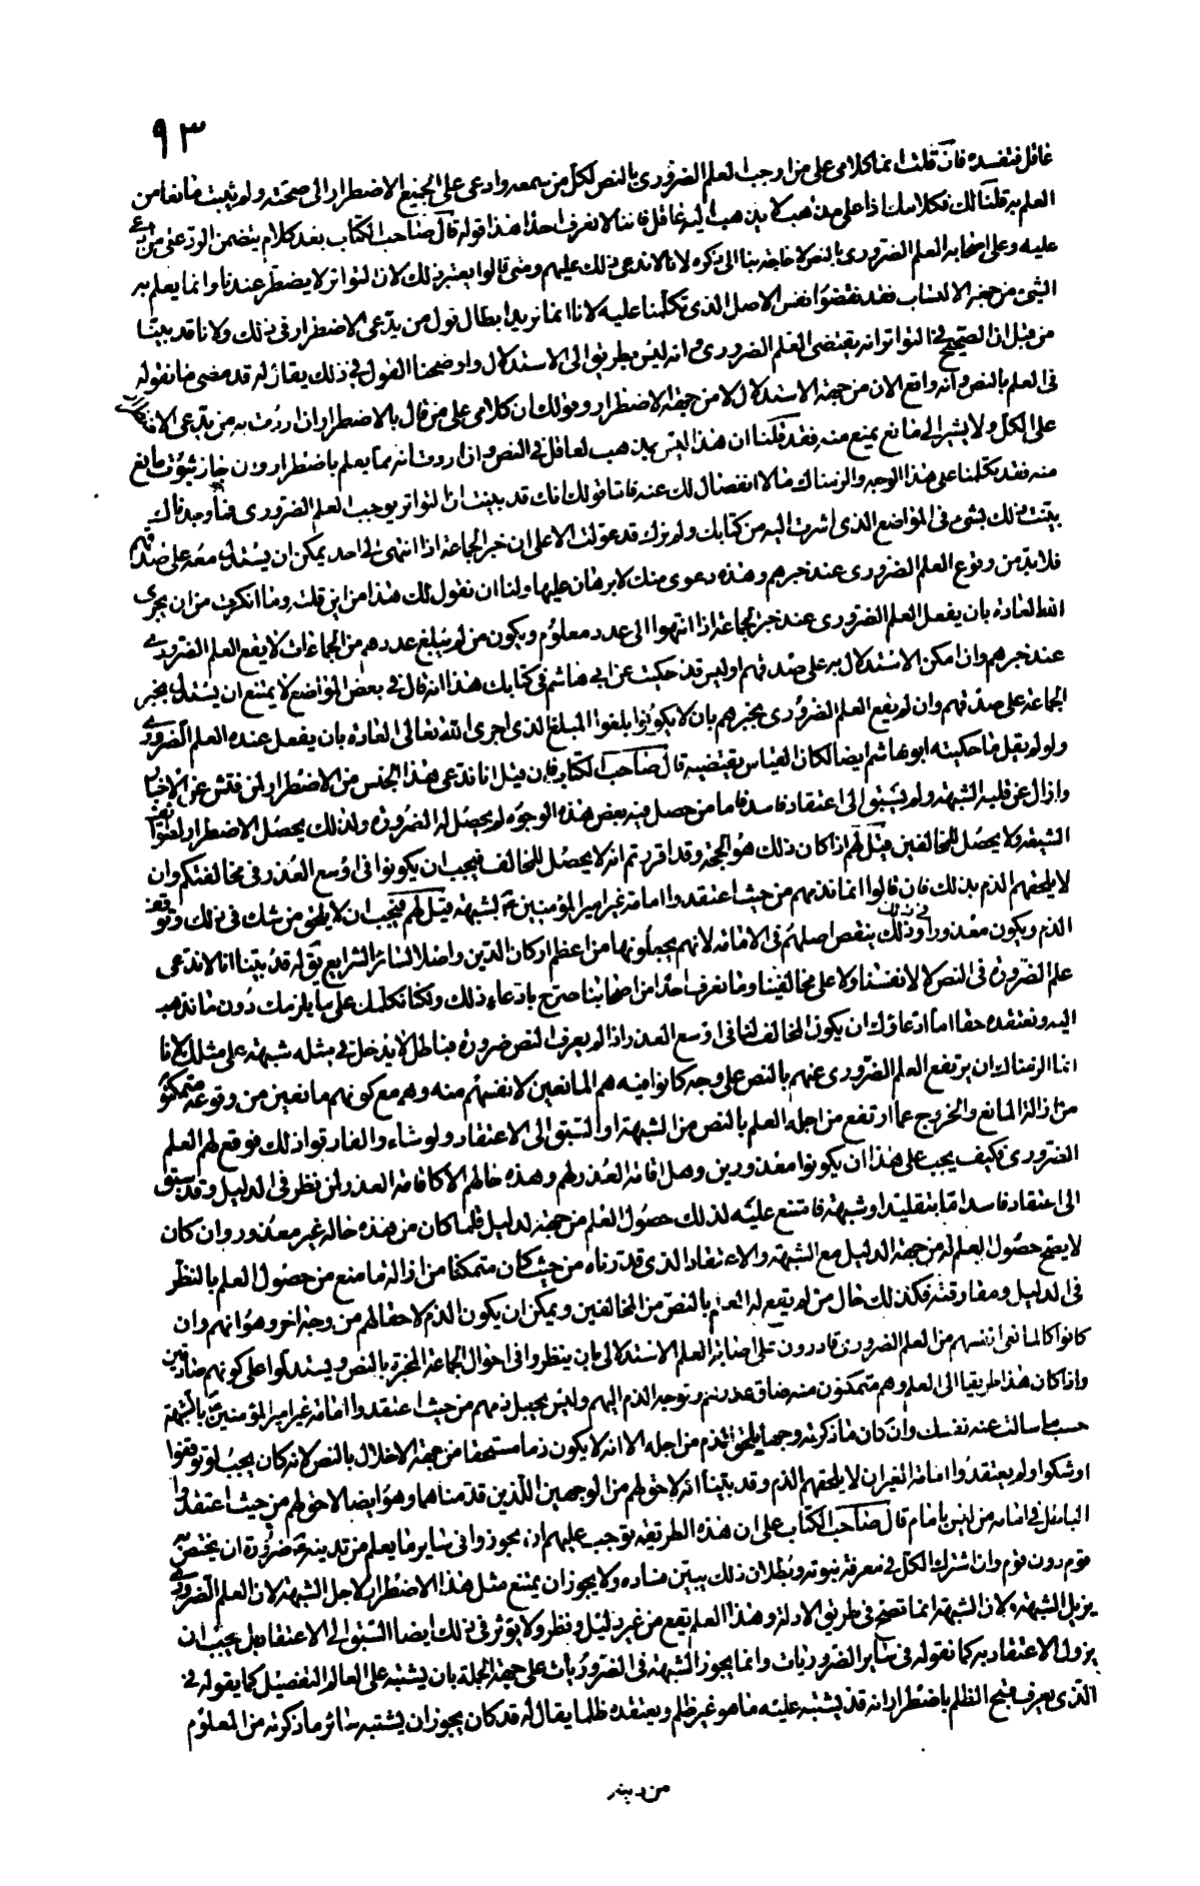 ٩٣
غافل فتفسده فان قلت انما كلامى على من اوجب العلم الضرورى بالنص لكل من يسمعه وادعى على الجميع الاضطرار الى صحته ولم يثبت مانعا من
العلم به قلنا لك فكلامك اذا على مذهب لا يذهب اليه عاقل فاننا لا نعرف احدا هذا قوله قال صاحب الكتاب بعد كلام يتضمن الرد على من يدعى
عليه وعلى اصحابه العلم الضرورى بالنص لا حاجة بنا الى ذكره لانا لا ندعى ذلك عليهم ومتى قالوا يعتبر ذلك لان التواتر لا يضطر عندنا وانما يعلم به
الشىء من جهة الاكتساب فقد نقضوا نفس الاصل الذى تكلمنا عليه لانا انما نريد ابطال قول من يدعى الاضطرار فى ذلك ولانا قد بينا
من قبل ان الصحيح فى التواتر انه يقتضى العلم الضرورى وانه ليس بطريق الى الاستدلال واوضحنا القول فى ذلك يقال له قد مضى ما نقوله
فى العلم بالنص وانه واقع الان من جهة الاستدلال لا من جهة الاضطرار وقولك ان كلامى على من قال بالاضطرار ان اردت به من يدعى
على الكل ولا يشير الى مانع يمنع منه فقد قلنا ان هذا ليس بمذهب لعاقل فى النص وان اردت انه مما يعلم باضطرار وان جاز ثبوت مانع
منه فقد تكلمنا على هذا الوجه والزمناك ما لا انفصال لك عنه فاما قولك انك قد بينت ان التواتر يوجب العلم الضرورى فما وجدناك
بينت ذلك بشىء فى المواضع الذى اشرت اليه من كتابك ولم نرك قد عولت الا على ان خبر الجماعة اذا انتهى الى احد يمكن ان يستدل معه على صدقهم
فلا بد من وقوع العلم الضرورى عند خبرهم وهذه دعوى منك لا برهان عليها ولنا ان نقول لك هذا من اين قلت وما انكرت من ان يجرى
الله العادة بان يفعل العلم الضرورى عند خبر الجماعة اذا انتهوا الى عدد معلوم ويكون من لم يبلغ عددهم من الجماعات لا يقع العلم الضرورى
عند خبرهم وان امكن الاستدلال به على صدقهم اوليس قد حكيت عن ابى هاشم فى كتابك هذا انه قال فى بعض المواضع لا يمتنع ان يستدل بخبر
الجماعة على صدقهم وان لم يقع العلم الضرورى بخبرهم بان لا يكونوا بلغوا المبلغ الذى اجرى الله تعالى العادة بان يفعل عنده العلم الضرورى
ولو لم يقل ما حكيته ابو هاشم ايضا لكان القياس يقتضيه قال صاحب الكتاب فان قيل انا ندعى هذا الجنس من الاضطرار لمن فتش عن الاخبار
وازال عن قلبه الشبهة ولم يسبق الى اعتقاد فاسد فاما من حصل فيه بعض هذه الوجوه لم يحصل له الضرورة ولذلك يحصل الاضطرار
الشيعة ولا يحصل للمخالفين قيل لهم اذا كان ذلك هو الحجة وقد اقررتم انه لا يحصل للمخالف فيجب ان يكونوا فى اوسع العذر فى مخالفتكم وان
لا يلحقهم الذم بذلك فان قالوا انما نذمهم من حيث اعتقدوا امامة غير امير المؤمنين لشبهة قيل لهم فيجب ان لا يلحق من شك فى ذلك وتوقف
الذم ويكون معذورا وفى ذلك ينقض اصلهم فى الامامة لانهم يجعلونها من اعظم اركان الدين واصلا لسائر الشرايع يق له قد بينا انا لا ندعى
علم الضرورة فى النص لا لانفسنا ولا على مخالفينا وما نعرف احدا من اصحابنا صرح بادعاء ذلك ولكنا نكلمك على ما يلزمك دون ما نذهب
اليه ونعتقده حقا اما ادعاؤك ان يكون المخالف لنا فى اوسع العذر اذا لم يعرف النص ضرورة فباطل لا يدخل فى مثله شبهة على مثلك لانا
انما الزمناك ان يرتفع العلم الضرورى عنهم بالنص على وجه كانوا فيه هم المانعين لانفسهم منه وهم مع كونهم مانعين من وقوعه متمكنون
من ازالة المانع والخروج عما ارتفع من اجله العلم بالنص من الشبهة او السبق الى الاعتقاد ولو شاءوا لفارقوا ذلك فوقع لهم العلم
الضرورى فكيف يجب على هذا ان يكونوا معذورين وهل اقامة العذر لهم وهذه حالهم الا كاقامة العذر لمن نظر فى الدليل وقد سبق
الى اعتقاد فاسد اما بتقليد او شبهة فامتنع عليه لذلك حصول العلم من جهة الدليل فلما كان من هذه حاله غير معذور وان كان
لا يصح حصول العلم له من جهة الدليل مع الشبهة والاعتقاد الذى قدرناه من حيث كان متمكنا من ازالة ما منع من حصول العلم بالنظر
فى الدليل ومفارقته فكذلك حال من لم يقع له العلم بالنص من المخالفين ويمكن ان يكون الذم لاحقا لهم من وجه اخر وهو انهم وان
كانوا كالمانعى انفسهم من العلم الضرورى قادرون على اصابة العلم الاستدلالى بان ينظروا فى احوال الجماعة المخبرة بالنص ويستدلوا على كونهم صادقين
واذا كان هذا طريقا الى العلم وهم متمكنون منه ضاق عذرهم وتوجه الذم اليهم وليس يجب ان نذمهم من حيث اعتقدوا امامة غير امير المؤمنين بالشبهة
حسب ما سالت عنه نفسك وان كان ما ذكرته وجها يلحق الذم من اجله الا انه لا يكون ذما مستحقا من جهة الاخلال بالنص لانه كان يجب لو توقفوا
او شكوا ولم يعتقدوا امامة الغير ان لا يلحقهم الذم وقد بينا انه لاحق لهم من الوجهين اللذين قدمناهما وهو ايضا لاحق لهم من حيث اعتقدوا
الباطل فى امامة من ليس بامام قال صاحب الكتاب على ان هذه الطريقة توجب عليهم ان يجوزوا فى سائر ما يعلم من تدينه ضرورة ان يختص به
قوم دون قوم وان اشترك الكل فى معرفة نبوته وبطلان ذلك يبين فساده ولا يجوز ان يمتنع مثل هذا الاضطرار لاجل الشبهة لان العلم الضرورى
يزيل الشبهة لان الشبهة انما تصح فى طريق الادلة وهذا العلم يقع من غير دليل ونظر ولا يؤثر فى ذلك ايضا السبق الى الاعتقاد بل يجب ان
يزول الاعتقاد به كما نقوله فى سائر الضروريات وانما يجوز الشبهة فى الضروريات على جهة الجملة بان يشتبه على العالم التفصيل كما يقوله فى
الذى يعرف قبح الظلم باضطرار انه قد يشتبه عليه ما هو غير ظلم ويعتقده ظلما يقال له قد كان يجوز ان يشتبه سائر ما ذكرته من المعلوم
من دينه